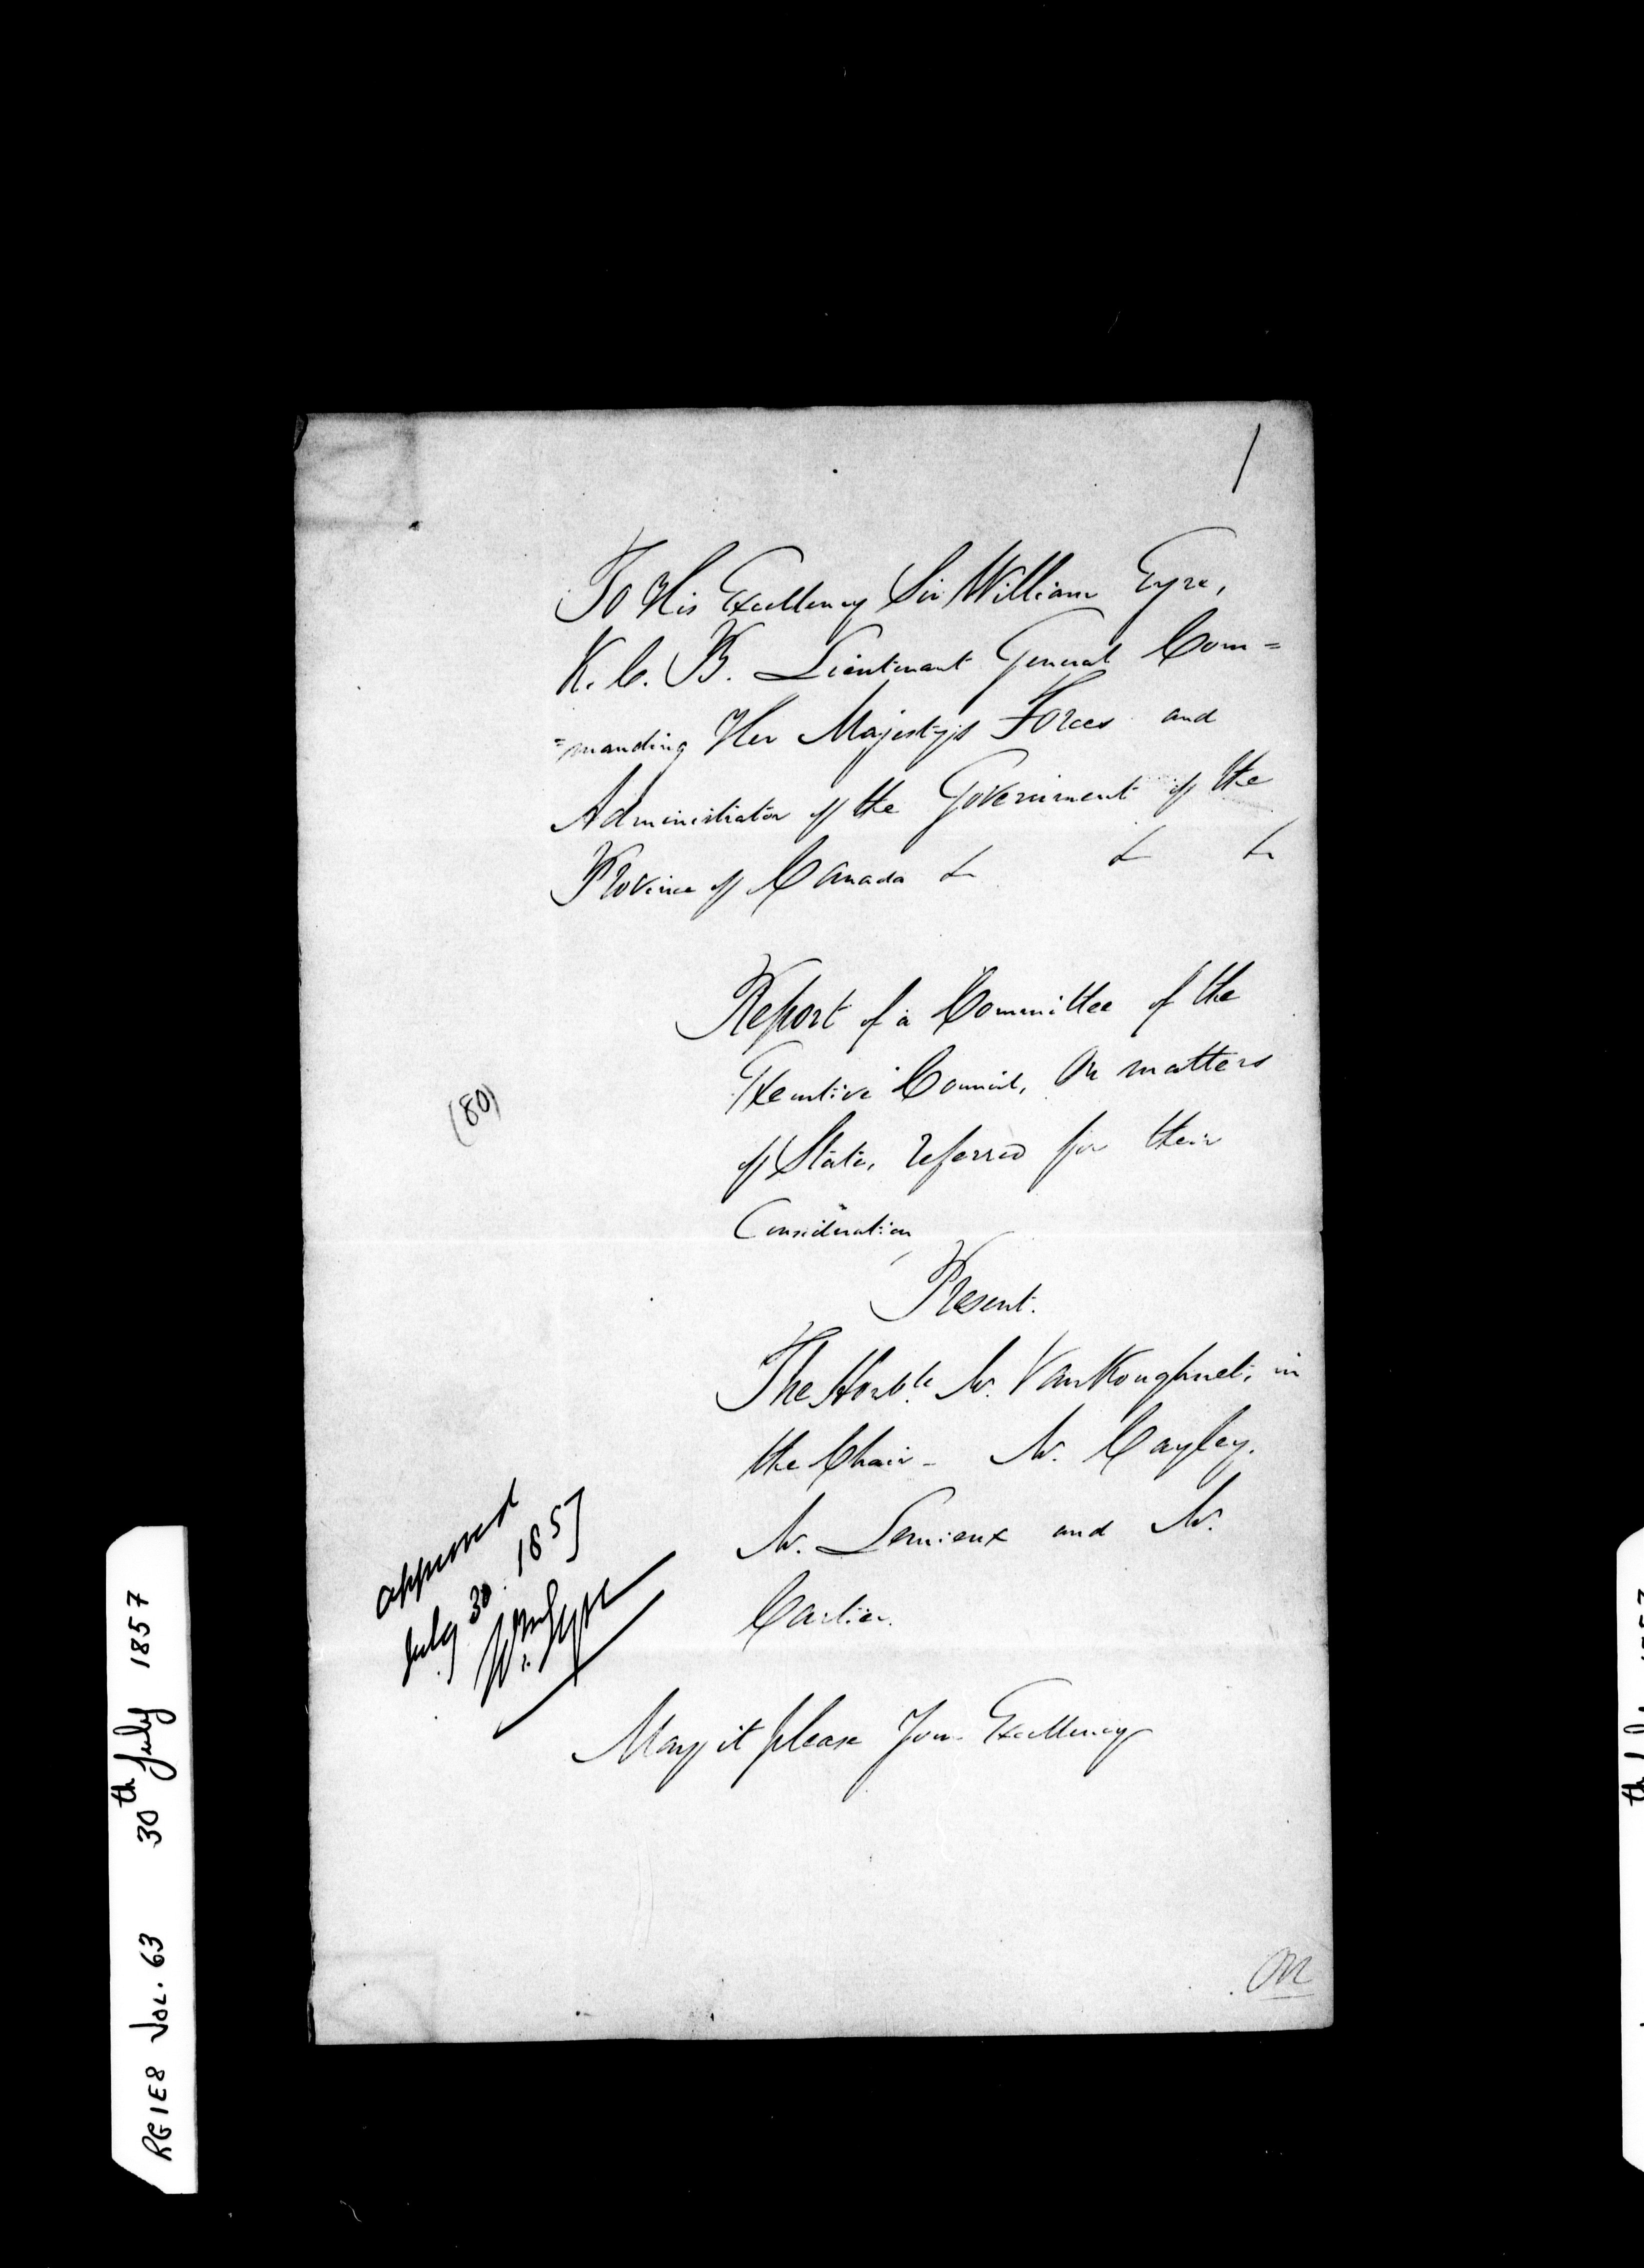 1
To His Excellency Sir William Eyre,
K. C. B. Lieutenant General Com=
=manding Her Majesty's Forces and
Administrator of the Government of the
Province of Canada &c &c &c
Report of a Committee of the
Executive Council, On matters
of State, referred for their
Consideration
(80)
Present.
The Honble Mr. VanKoughnet, in
the Chair - Mr. Cayley.
Mr. Lemieux and Mr.
Cartier.
approved
July 30. 1857
Wm Eyre
May it please Your Excellency
On
RG1E8 VOL. 63 30th July 1857